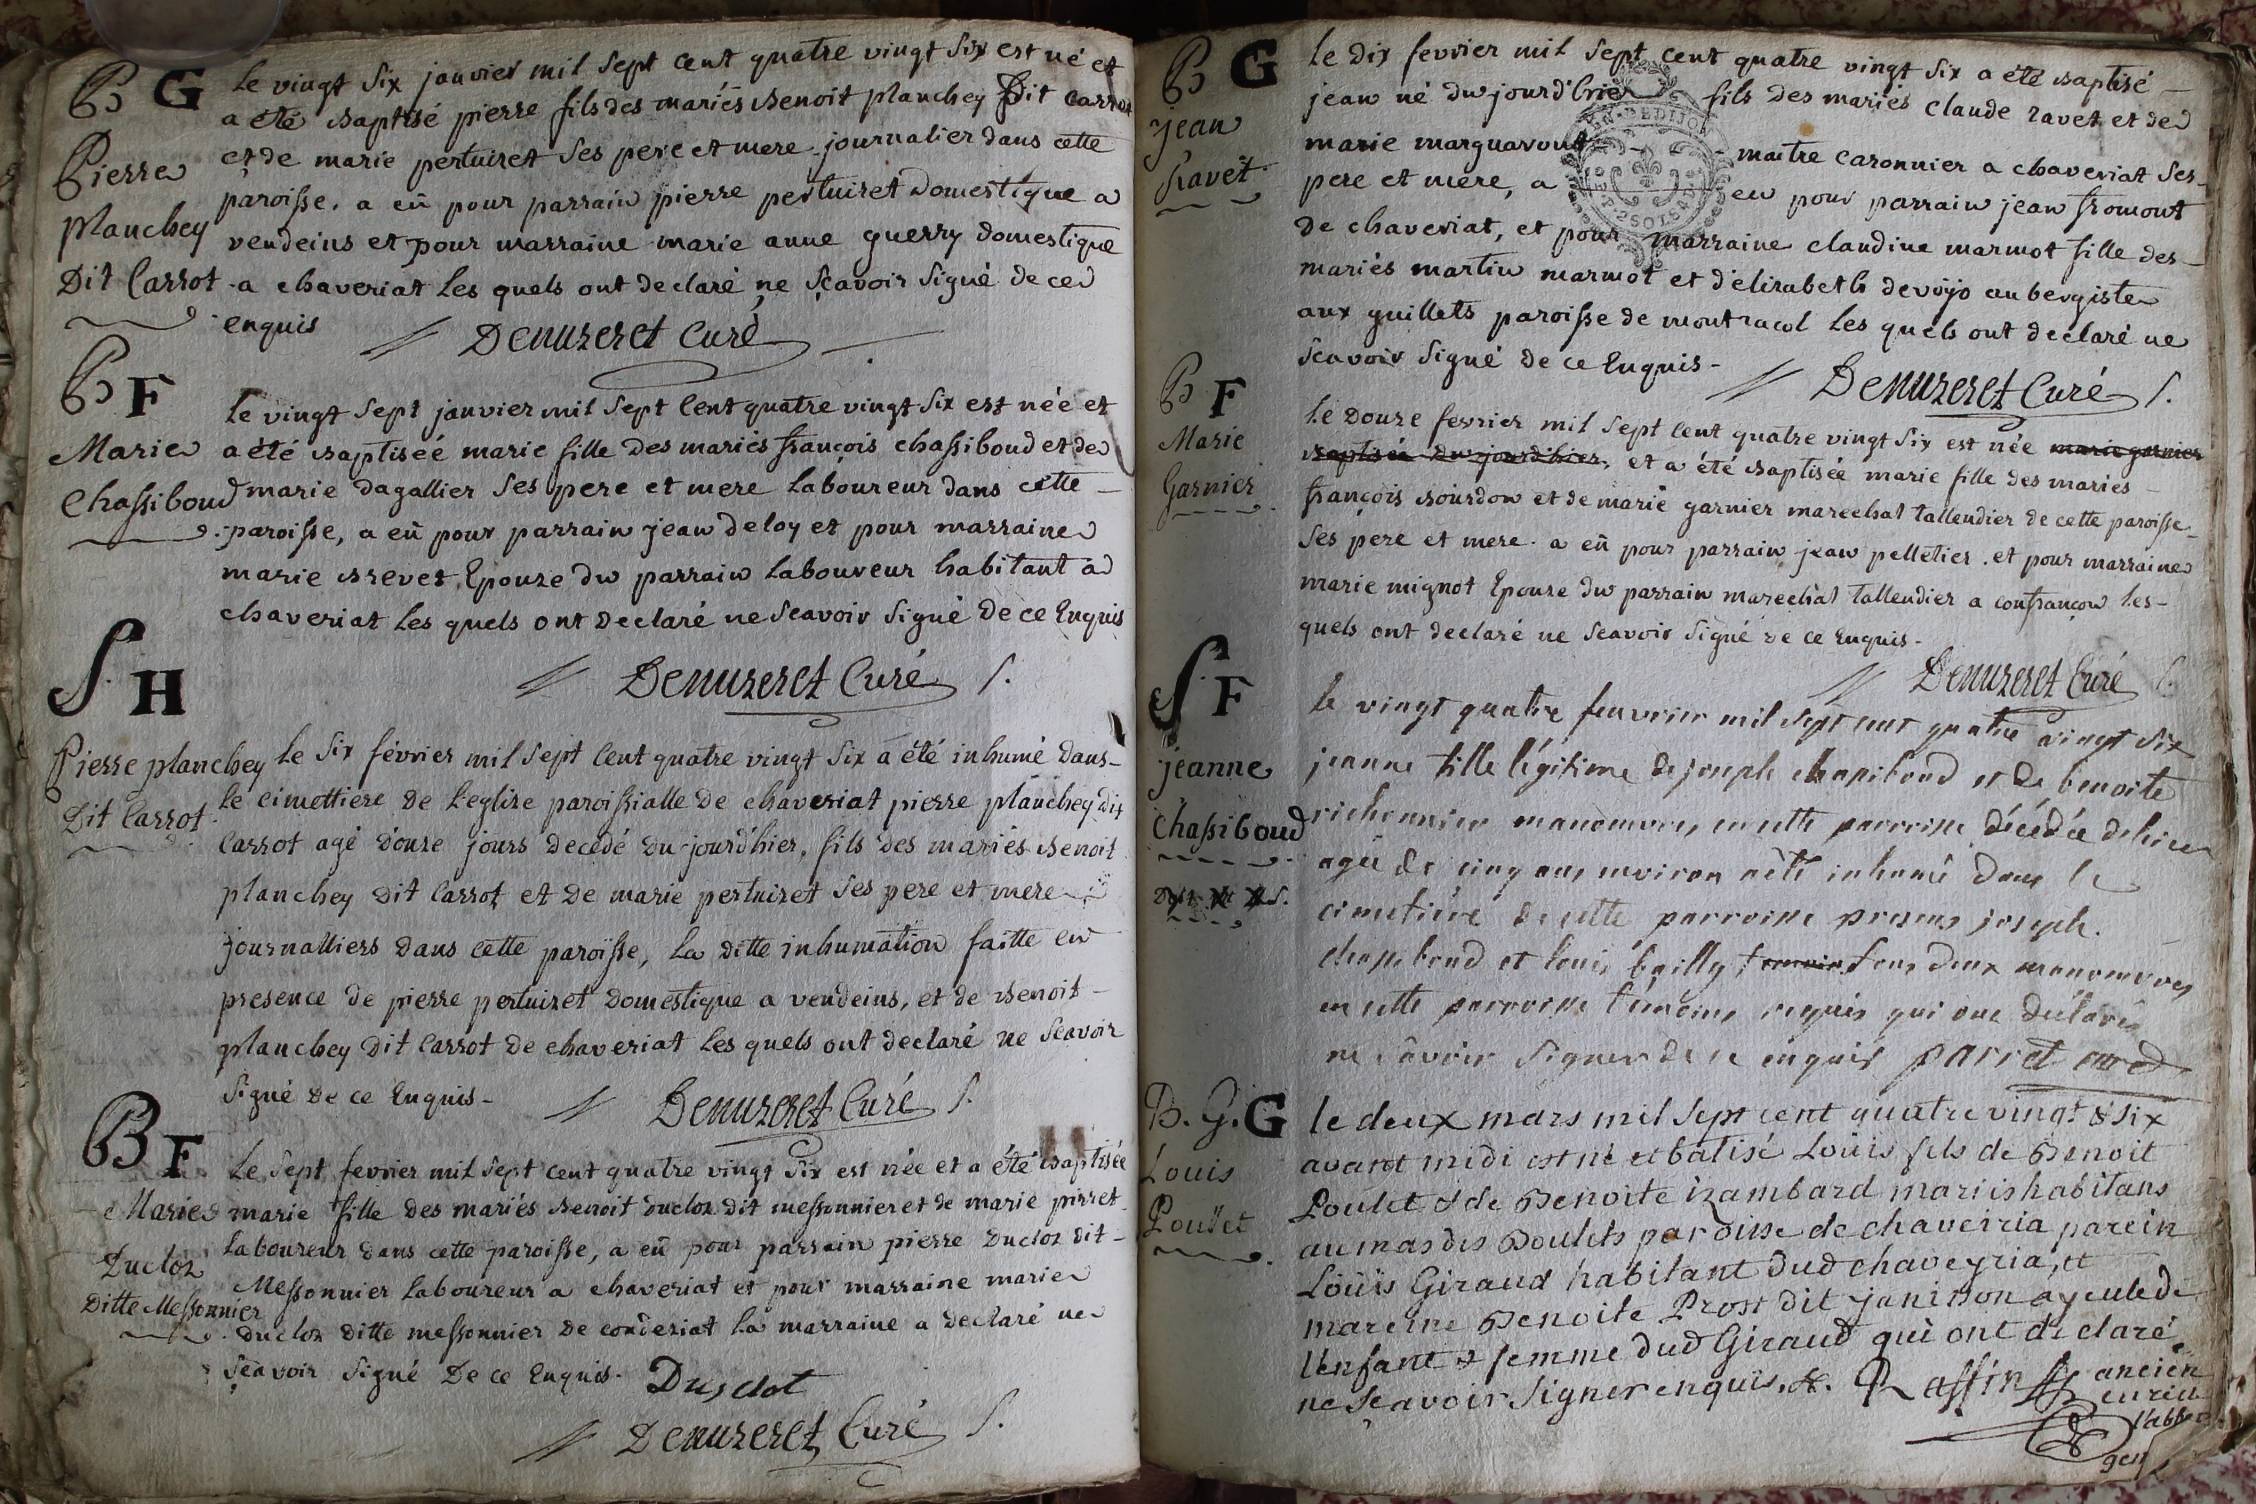 B G
Pierre
planchey
Dit Carrot
Le vingt six janvier mil sept cent quatre vingt six est né et
a été baptisé pierre fils des mariés Benoit planchey Dit Carrot
et de marie pertuizet ses pere et mere journalier dans cette
paroisse. a eû pour parrain pierre pertuizet Domestique a
vendeins et pour marraine marie anne guerry domestique
a chaveriat les quels ont declaré ne sçavoir signé de ce
enquis
Denuzeret Curé
B F
Marie
Chassiboud
Le vingt sept janvier mil sept Cent quatre vingt six est née et
a été baptiseé marie fille des mariés françois chassiboud et de
marie dagallier ses pere et mere laboureur dans cette
paroisse, a eû pour parrain jean deloy et pour marraine
marie brevet Epouze du parrain laboureur habitant a
chaveriat les quels ont Declaré ne Scavoir signé De ce Enquis
Denuzeret Curé S.
S. H
Pierre planchey
Dit Carrot
Le six février mil sept Cent quatre vingt six a été inhumé dans
le cimettiere de l'eglize paroissialle de chaveriat pierre planchey dit
Carrot agé douze jours decedé du jourdhier, fils des mariés Benoit
planchey dit Carrot et de marie pertuizet ses pere et mere
journalliers dans cette paroisse, la ditte inhumation faitte en
presence de pierre pertuizet Domestique a vendeins, et de Benoit
planchey dit Carrot de chaveriat les quels ont declaré ne scavoir
signé de ce Enquis
Denuzeret Curé S.
B F
Marie
Ducloz
Ditte Messonnier
Le sept fevrier mil sept cent quatre vingt six est née et a été baptisée
marie fille des mariés Benoit ducloz dit messonnier et de marie pirret
laboureur dans cette paroisse, a eû pour parrain pierre Ducloz dit
Messonnier laboureur a chaveriat et pour marraine marie
ducloz ditte messonnier de conderiat la marraine a declaré ne
sçavoir signé De ce Enquis. Dusclot
Denuzeret Curé S.
B G
jean
Ravet
le dix fevrier mil sept cent quatre vingt six a été baptisé
jean né du jourd'hier fils des mariés claude ravet et de
marie marguavout maitre caronnier a chaveriat ses
pere et mere, a eu pour parrain jean fromont
de chaveriat, et pour marraine claudine marmot fille des
mariés martin marmot et d'elizabeth devoyo aubergiste
aux guillets paroisse de montracol les quels ont declaré ne
scavoir signé de ce Enquis
Denuzeret Curé S.
B F
Marie
Garnier
Le Douze fevrier mil sept cent quatre vingt six est née marie garnier
baptisée du jourd'hier, et a été baptisée marie fille des maries
françois bourdon et de marie garnier marechal tallendier de cette paroisse
ses pere et mere. a eû pour parrain jean pelletier. et pour marraine
marie mignot Epouze du parrain marechal tallendier a confrançon les
quels ont declaré ne scavoir signé de ce Enquis
Denuzeret Curé
S. F
jeanne
Chassiboud
le vingt quatre feuvrier mil sept cent quatre vingt six
jeanne fille légitime de joseph chassiboud et de benoite
richonnier manoeuvres en cette parroisse décédée dehier
agée de cinq ans environ a été inhumé dans le
cimetiere de cette parroisse presens joseph
chassiboud et louis bailly temoins tous deux manoeuvres
en cette parroisse témoins requis qui ont déclarés
ne savoir signer de ce enquis parret curé
B. G. G
Louis
Poulet
le deux mars mil sept cent quatre vingt & six
avant midi est né et batisé Loüis fils de Benoit
Poulet & de Benoite izambard mariés habitans
au mas des Poulets paroisse de chaveiria parein
Loüis Giraud habitant dud chaveyria, et
mareine Benoite Prost dit janinon ayeule de
l'enfant & femme dud Giraud qui ont declaré
ne sçavoir signer enquis. &. Raffin ancien
curé